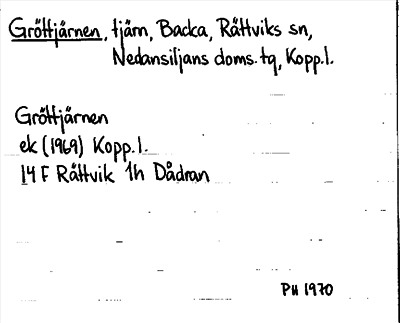 Gröttjärnen, tjärn, Backa, Rättviks sn,
Nedansiljans doms. tg, Kopp. l.
Gröttjärnen
ek (1969) Kopp. l.
14 F Rättvik 1h Dådran
PH 1970